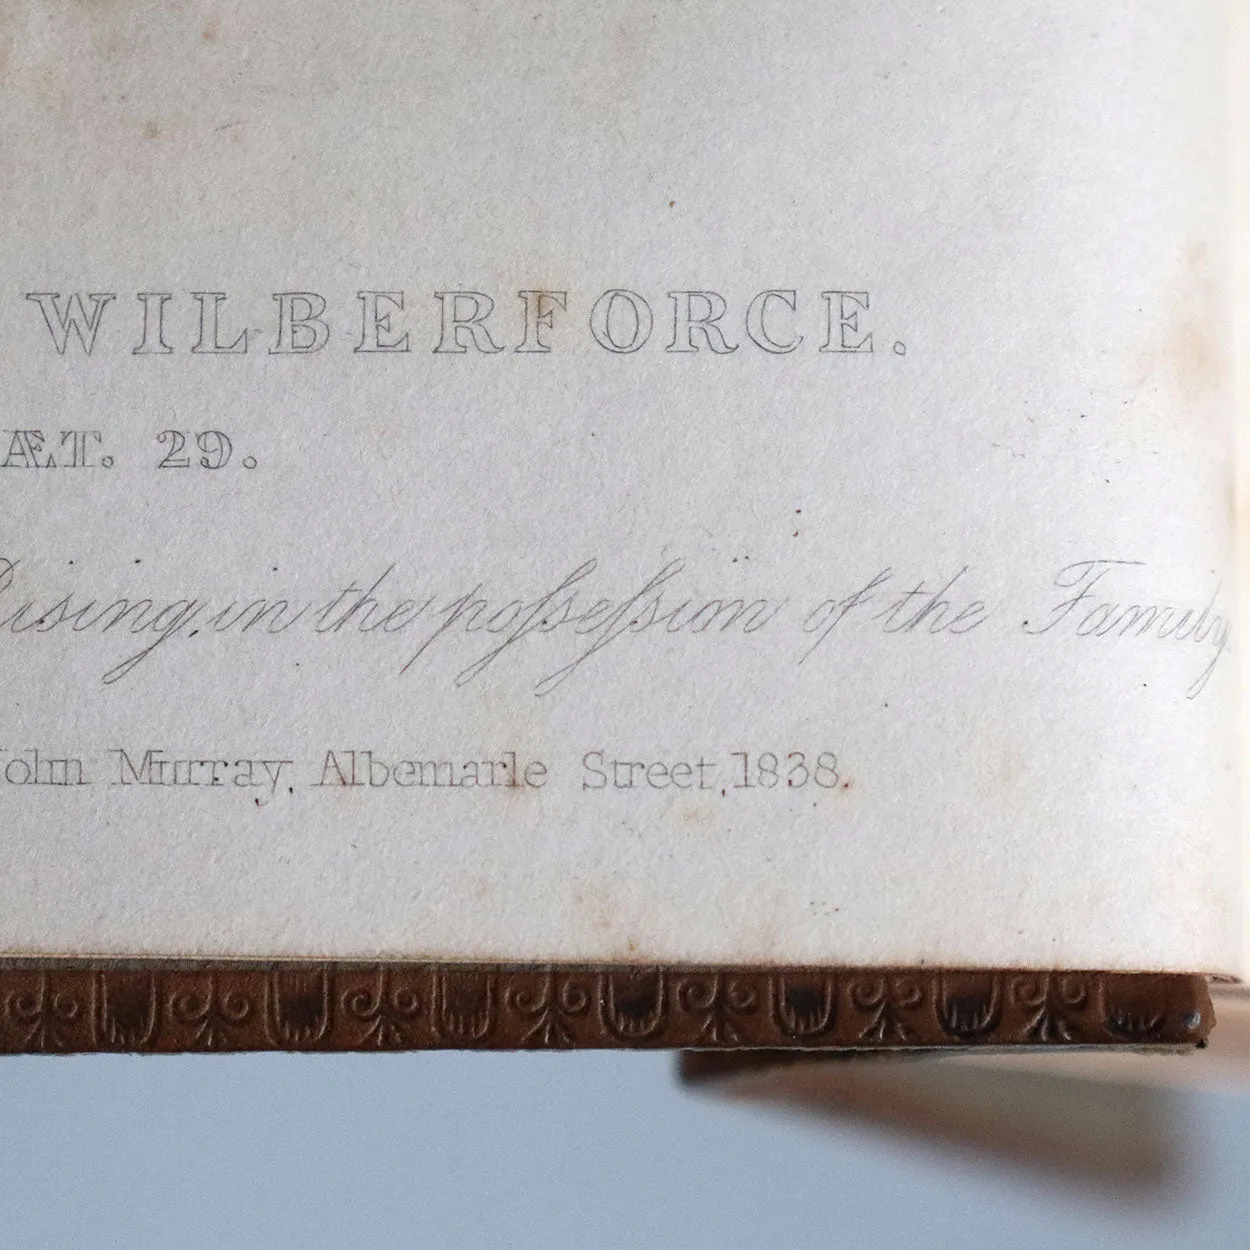 WILBERFORCE.
ÆT. 29.
Rising, in the poſseſsion of the Family.
John Murray, Albemarle Street, 1838.